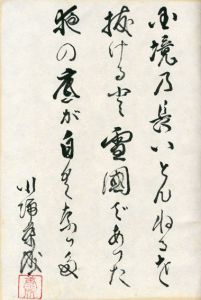 国境の長いとんねるを
抜けると雪國であった
夜の底が白くなった
川端康成